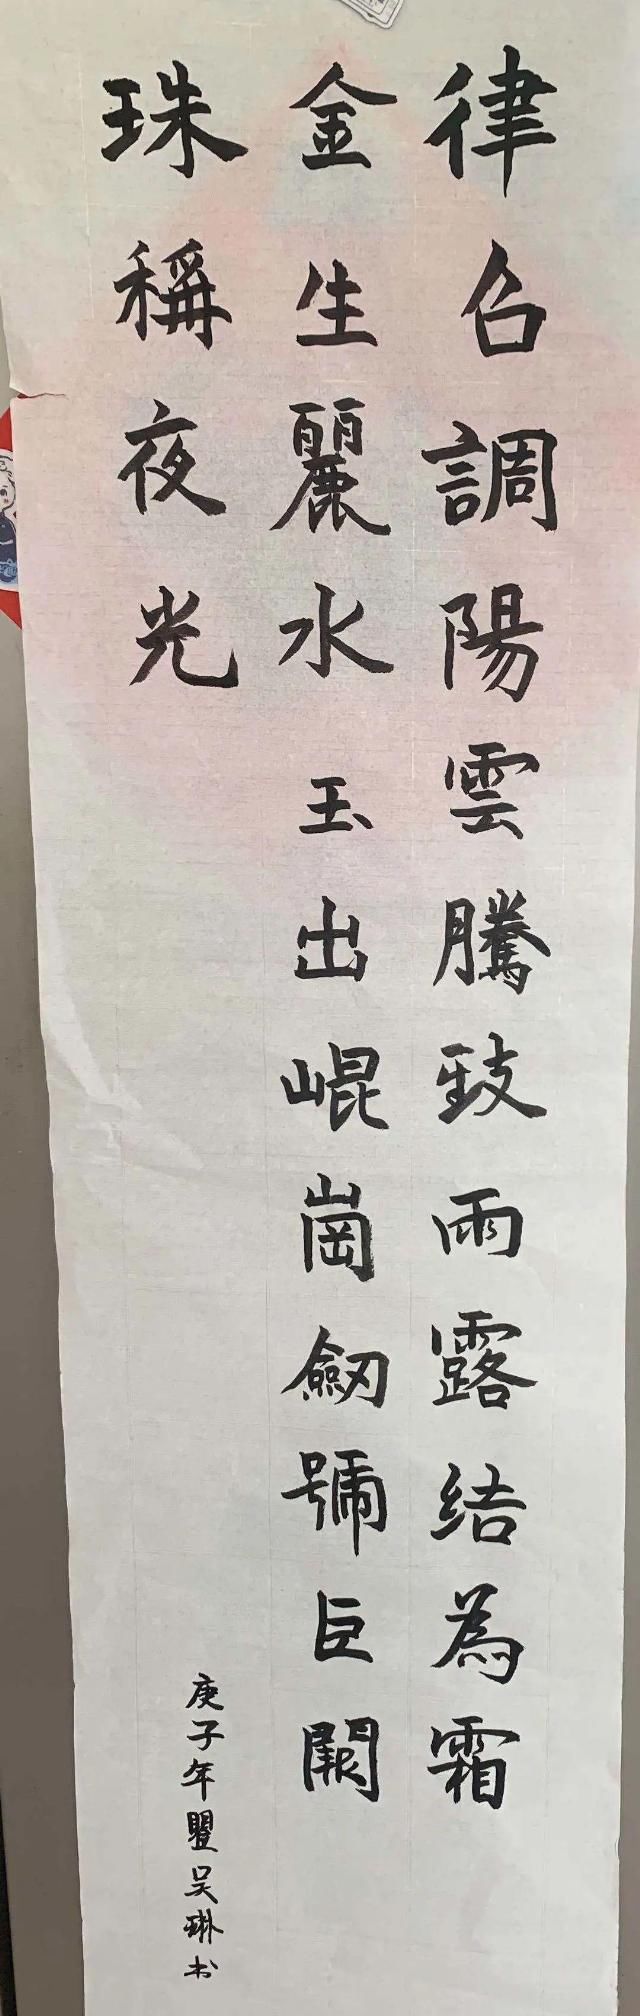 律召調陽雲騰致雨露結為霜
金生麗水玉出崐崗劒號巨闕
珠稱夜光
庚子年瞾吴琳书